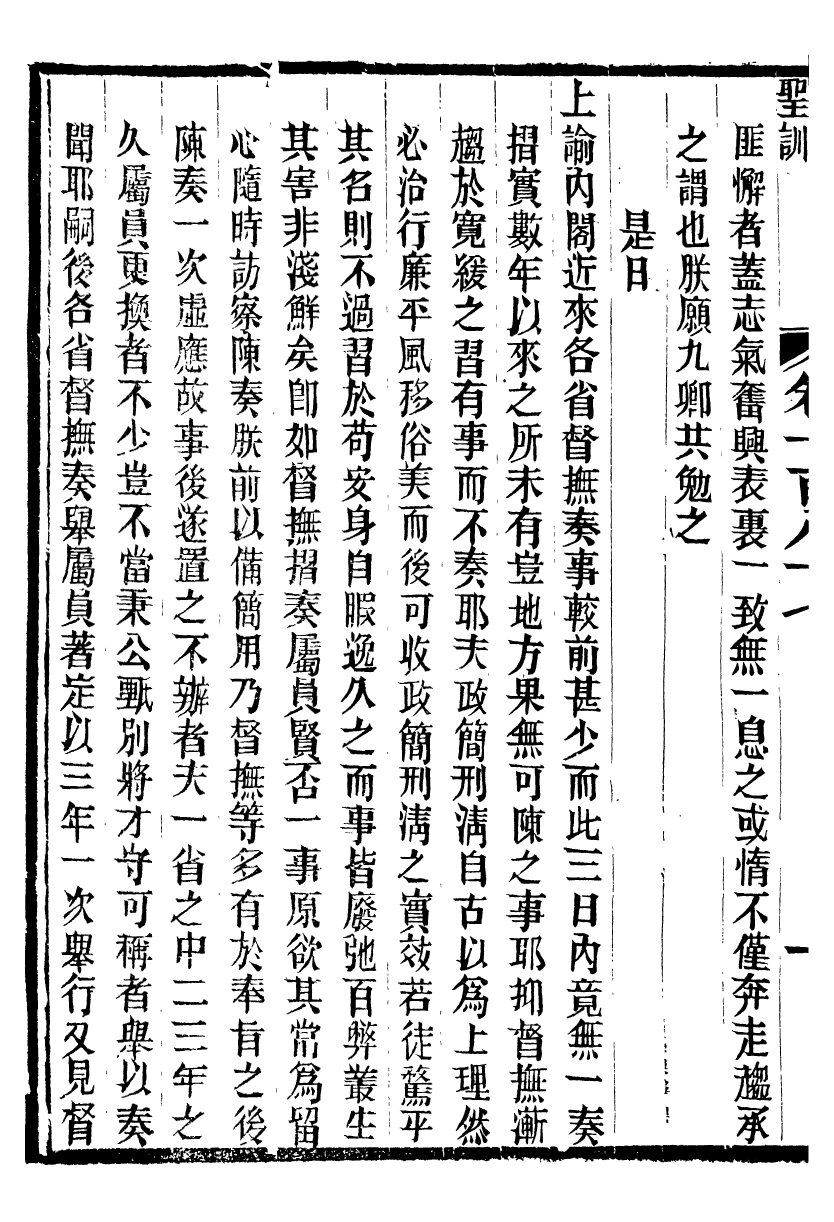 聖訓 卷一百八十七 一
匪懈者蓋志氣奮興表裏一致無一息之或惰不僅奔走趨承
之謂也朕願九卿共勉之
是日
上諭內閣近來各省督撫奏事較前甚少而此三日內竟無一奏
摺實數年以來之所未有豈地方果無可陳之事耶抑督撫漸
趨於寬緩之習有事而不奏耶夫政簡刑淸自古以爲上理然
必治行廉平風移俗美而後可收政簡刑淸之實效若徒騖乎
其名則不過習於苟安身自暇逸久之而事皆廢弛百弊叢生
其害非淺鮮矣卽如督撫摺奏屬員賢否一事原欲其常爲留
心隨時訪察陳奏朕前以備簡用乃督撫等多有於奉旨之後
陳奏一次虛應故事後遂置之不辦者夫一省之中二三年之
久屬員更換者不少豈不當秉公甄別將才守可稱者舉以奏
聞耶嗣後各省督撫奏舉屬員著定以三年一次舉行又見督